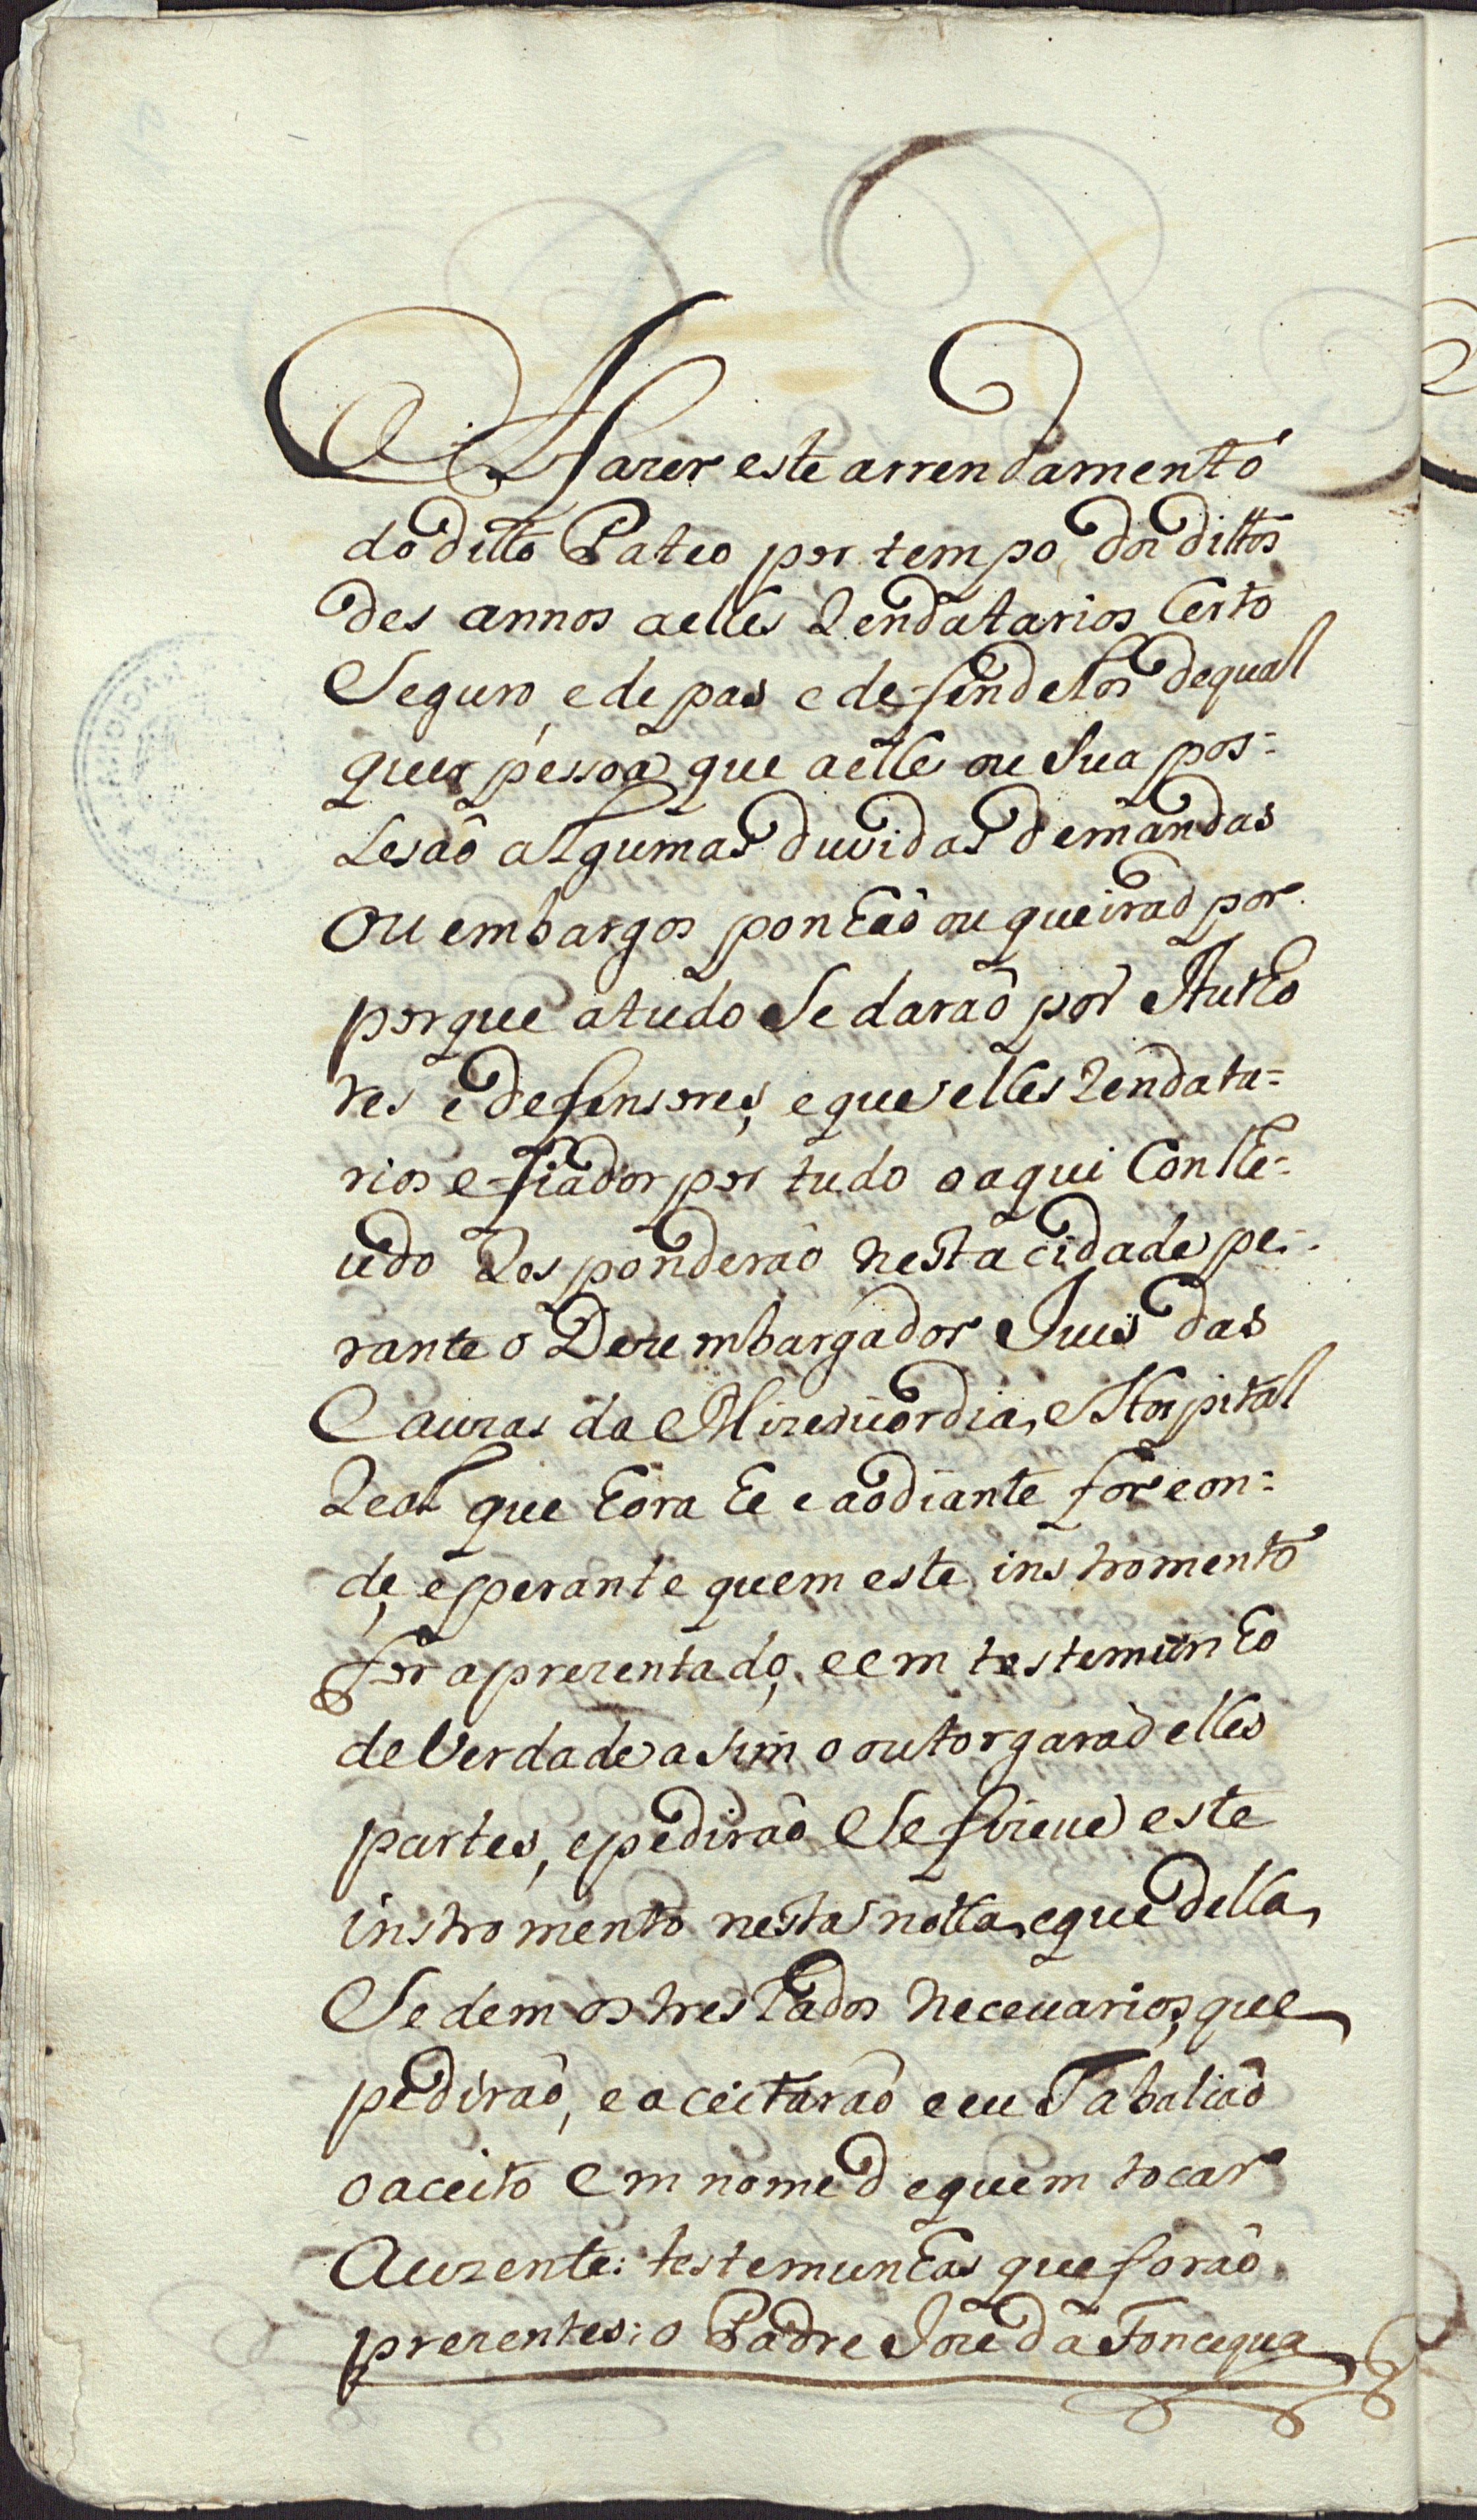 A fazer este arrendamento
do ditto Pateo por tempo dos dittos
des annos aelles Rendatarios Certo
Seguro, e de pas e defendelos dequal
quer pessoa que aelle ou Sua pos=
Lesaõ algumas duvidas demandas
Ou embargos ponhaõ ou queiraõ por
porque atudo Se daraõ por Autho
res e defensores, e que elles Rendata=
rios e fiador por tudo o aqui Conthe=
udo Responderaõ nesta cidade pe=
rante o Dezembargador Juis das
Cauzas da Mizericordia, e Hospital
Real que hora he e ao diante for eon=
de, eperante quem este instromento
for aprezentado, e em testemunho
de Verdade asim o outorgaraõ elles
partes, epediraõ Se fizeue este
instromento nesta notta, eque della
Se dem os tresLados neceuarios, que
pediraõ, e aceitaraõ e eu Tabaliaõ
o aceito em nome dequem tocar
Auzente: testemunhas que foraõ
prezentes: o Padre Joze da Foncequa